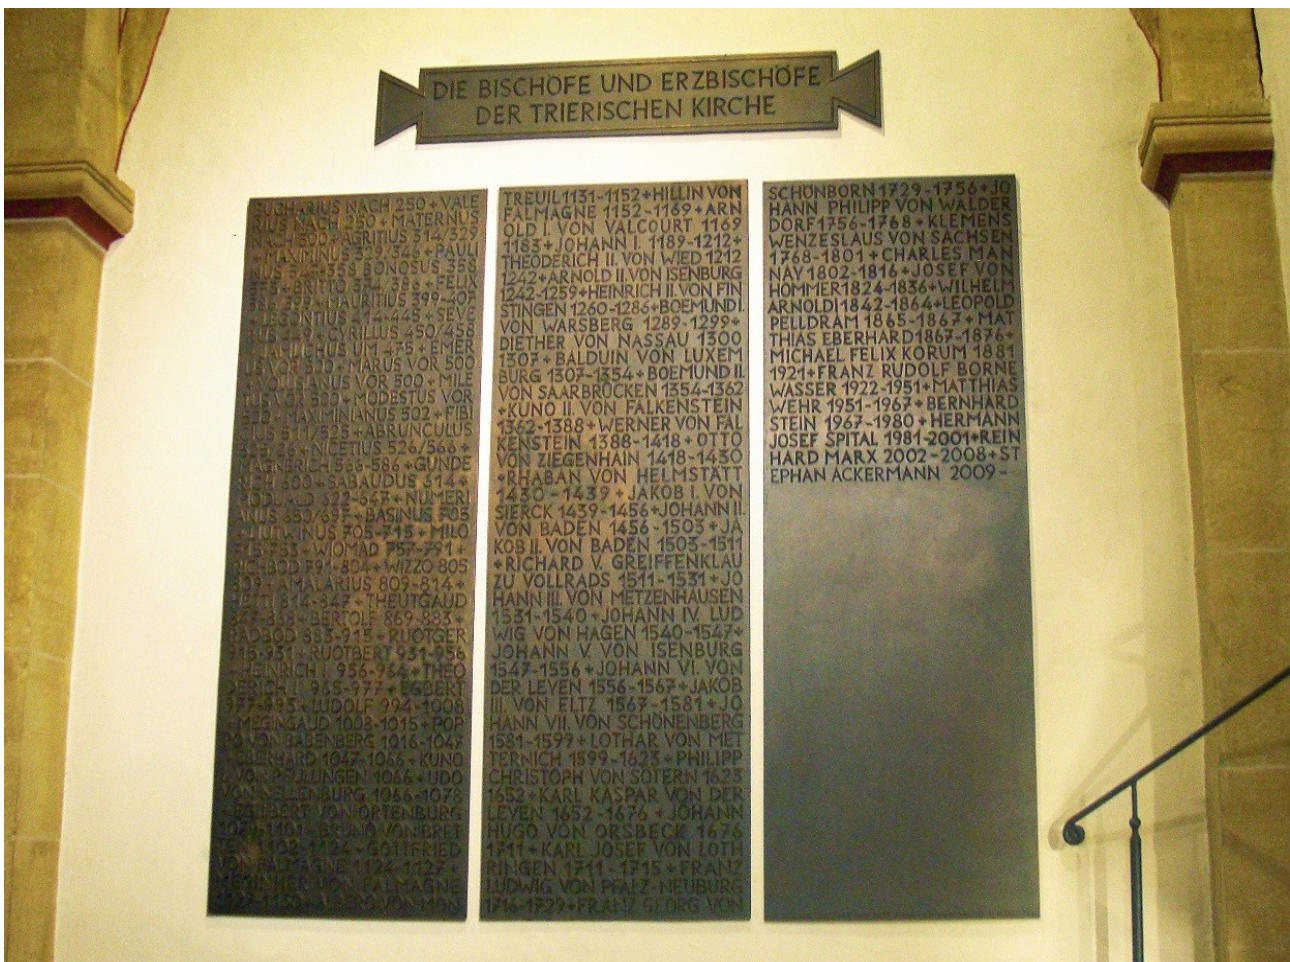 DIE BISCHÖFE UND ERZBISCHÖFE
DER TRIERISCHEN KIRCHE
EUCHARIUS NACH 250+VALE
RIUS NACH 250+MATERNUS
NACH 300+AGRITIUS 314/329
MAXIMINUS 329-346+PAULI
NUS 347-358 BONOSUS 358
BRITTO 374-386+FELIX
MAURITIUS 399-407
+LEGONTIUS 414-445+SEVE
RUS 449+CYRILLUS 450/458
IAMLYCHUS UM 475+EMER
US VOR 500+MARUS VOR 500
+VOLUSIANUS VOR 500+MILE
TUS VOR 500+MODESTUS VOR
500+MAXIMIANUS 502+FIBI
CIUS 511/525+ABRUNCULUS
525/26+NICETIUS 526/566+
MAGNERICH 566-586+GUNDE
RICH 600+SABAUDUS 614+
MODUALD 622-647+NUMERI
ANUS 650/697+BASINUS 705
+LIUTWINUS 705-715+MILO
715-753+WIOMAD 757-791+
RIC-BOD 791-804+WIZZO 805
809+AMALARIUS 809-814+
HETTI 814-847+THEUTGAUD
847-868+BERTOLF 869-883+
RADBOD 883-915+RUOTGER
915-931+RUOTBERT 931-956
+HEINRICH I 956-964+THEO
DERICH I 965-977+EGBERT
977-993+LUDOLF 994-1008
+MEGINGAUD 1008-1015+POP
PO VON BABENBERG 1016-1047
+EBERHARD 1047-1066+KUNO
I. VON PFULLINGEN 1066+UDO
VON NELLENBURG 1066-1078
+EGILBERT VON ORTENBURG
1079-1101+BRUNO VON BRET
TEN 1102-1124+GOTTFRIED
VON FALMAGNE 1124-1127+
MEGINHER VON FALMAGNE
1127-1130+ALBERO VON MON
TREUIL 1131-1152+HILLIN VON
FALMAGNE 1152-1169+ARN
OLD I. VON VALCOURT 1169
1183+JOHANN I. 1189-1212+
THEODERICH II. VON WIED 1212
1242+ARNOLD II. VON ISENBURG
1242-1259+HEINRICH II. VON FIN
STINGEN 1260-1286+BOEMUND I.
VON WARSBERG 1289-1299+
DIETHER VON NASSAU 1300
1307+BALDUIN VON LUXEM
BURG 1307-1354+BOEMUND II.
VON SAARBRÜCKEN 1354-1362
+KUNO II. VON FALKENSTEIN
1362-1388+WERNER VON FAL
KENSTEIN 1388-1418+OTTO
VON ZIEGENHAIN 1418-1430
+RHABAN VON HELMSTÄTT
1430-1439+JAKOB I. VON
SIERCK 1439-1456+JOHANN II.
VON BADEN 1456-1503+JA
KOB II. VON BADEN 1503-1511
+RICHARD V. GREIFFENKLAU
ZU VOLLRADS 1511-1531+JO
HANN III. VON METZENHAUSEN
1531-1540+JOHANN IV. LUD
WIG VON HAGEN 1540-1547+
JOHANN V. VON ISENBURG
1547-1556+JOHANN VI. VON
DER LEYEN 1556-1567+JAKOB
III. VON ELTZ 1567-1581+JO
HANN VII. VON SCHÖNENBERG
1581-1599+LOTHAR VON MET
TERNICH 1599-1623+PHILIPP
CHRISTOPH VON SÖTERN 1623
1652+KARL KASPAR VON DER
LEYEN 1652-1676+JOHANN
HUGO VON ORSBECK 1676
1711+KARL JOSEF VON LOTH
RINGEN 1711-1715+FRANZ
LUDWIG VON PFALZ-NEUBURG
1716-1729+FRANZ GEORG VON
SCHÖNBORN 1729-1756+JO
HANN PHILIPP VON WALDER
DORF 1756-1768+KLEMENS
WENZESLAUS VON SACHSEN
1768-1801+CHARLES MAN
NAY 1802-1816+JOSEF VON
HOMMER 1824-1836+WILHELM
ARNOLDI 1842-1864+LEOPOLD
PELLDRAM 1865-1867+MAT
THIAS EBERHARD 1867-1876+
MICHAEL FELIX KORUM 1881
1921+FRANZ RUDOLF BORNE
WASSER 1922-1951+MATTHIAS
WEHR 1951-1967+BERNHARD
STEIN 1967-1980+HERMANN
JOSEF SPITAL 1981-2001+REIN
HARD MARX 2002-2008+ST
EPHAN ACKERMANN 2009-